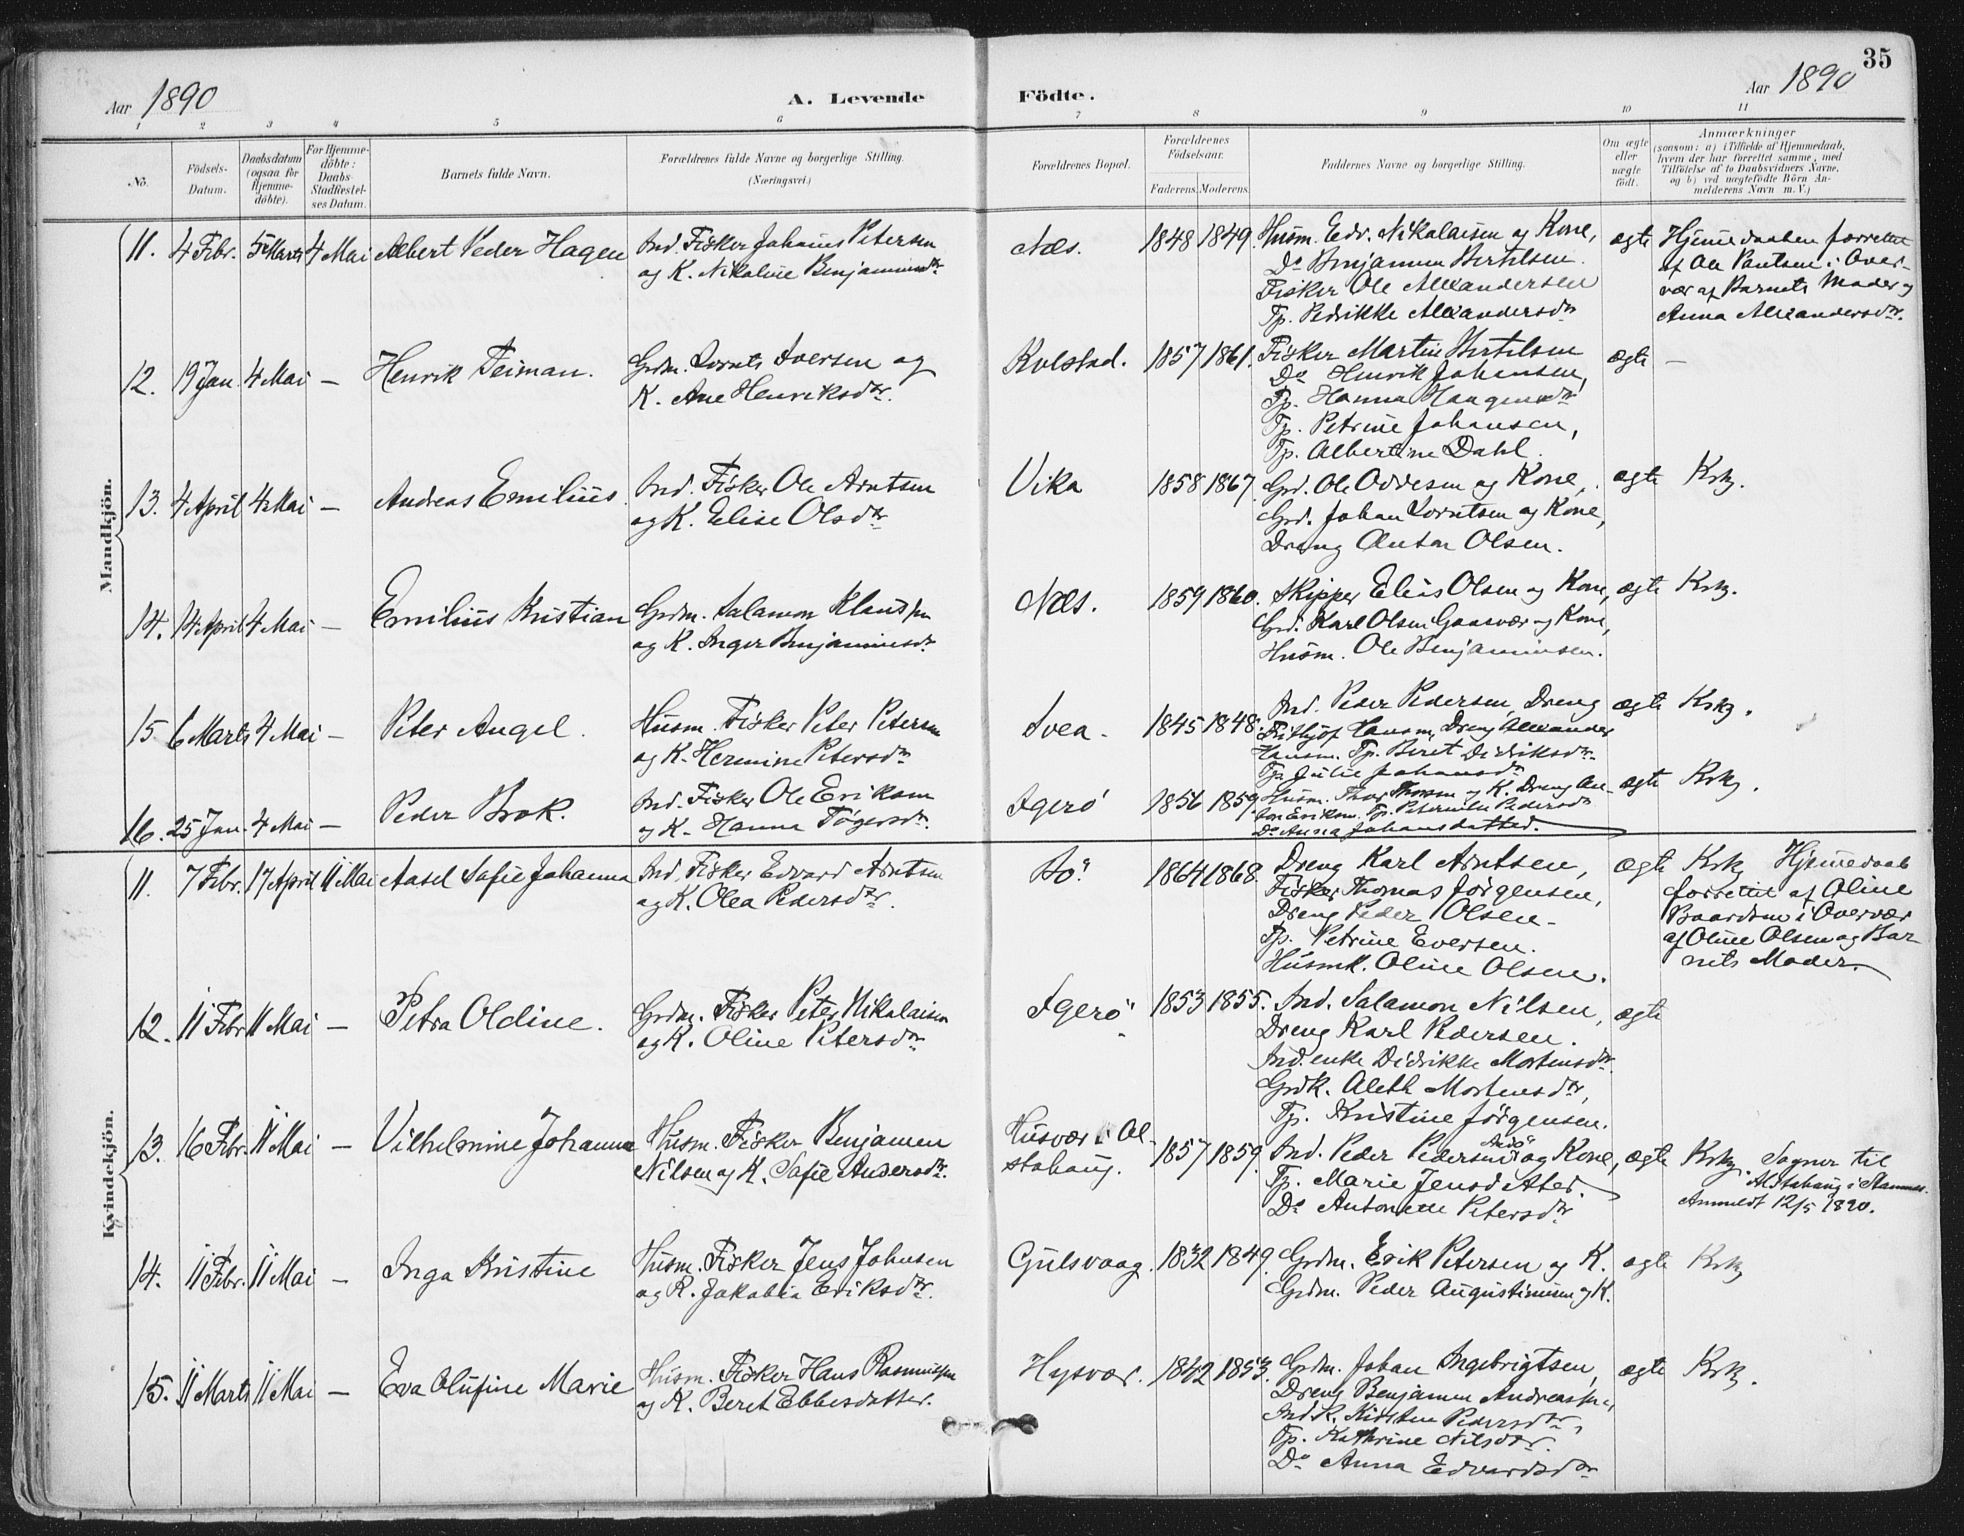 35
Aar 1890
A. Levende Födte.
Aar 1890
1 2 3 4 5 6 7 8 9 10 11
No.
Födsels-Datum.
Daabsdatum (ogsaa for Hjemme-döbte).
For Hjemme-döbte: Daabs-Stadfæstel-ses Datum.
Barnets fulde Navn.
Forældrenes fulde Navne og borgerlige Stilling.
(Næringsvei.)
Forældrenes Bopæl.
Forældrenes Födselsaar.
Faderens. Moderens.
Faddernes Navne og borgerlige Stilling.
Om ægte eller uægte födt.
Anmærkninger
(saasom: a) i Tilfælde af Hjemmedaab,
hvem der har forrettet samme, med
Tilföielse af to Daabsvidners Navne,
og b) ved uægtefödte Börn An-
melderens Navn m. V.)
Mandkjön.
11. 4 Febr. 5 Marts 4 Mai Albert Peder Hagen
Ind. Fisker Johannes Petersen
og K. Nikoline Benjaminsdtr
Næs. 1848 1849.
Husm. Edv. Nikolaisen og Kone,
Do Benjamin Bertelsen.
Fisker Ole Alexandersen
Tp. Pedrikke Alexandersdtr
ægte
Hjemmedaaben forrettet
af Ole Paulsen i Over-
vær af Barnets Moder og
Anna Alexandersdtr.
12. 19 Jan. 4 Mai — Henrik Teiman.
Grdm. Lornts Iversen og
K. Ane Henriksdtr.
Kolstad. 1857 1861.
Fisker Martin Bertelsen
Do Henrik Johansen,
Tp. Hanna Haagensdtr
Tp. Petrine Johansen,
Tp. Albertine Dahl.
ægte —
13. 4 April 4 Mai — Andreas Emilius.
Ind. Fisker Ole Arntsen
og K. Elise Olsdtr
Vika 1858 1867.
Grd. Ole Oddesen og Kone,
Grd. Johan Lorntsen og Kone,
Dreng Anton Olsen.
ægte Krk.
14. 14 April 4 Mai — Emilius Kristian
Grdm. Salamon Klaussen
og K. Inger Benjaminsdtr
Næs. 1859 1860.
Skipper Elias Olsen og Kone,
Grd. Karl Olsen Gaasvær og Kone,
Husm. Ole Benjaminsen.
ægte Krk.
15 6 Marts 4 Mai — Peter Angel.
Husm. Fisker Peter Petersen
og K. Hermine Petersdtr
Svea. 1845 1848.
Ind. Peder Pedersen, Dreng
Fridtjof Hansen, Dreng Alexander
Hansen. Tp. Beret Didriksdtr
Tp. Julie Johansdtr
ægte Krk.
16. 25 Jan. 4 Mai — Peder Brok.
Ind. Fisker Ole Eriksen
og K. Hanna Tøgersdtr.
Igerö 1856 1859
Husm. Thor Thorsen og K. Dreng An-
ton Eriksen. Tp. Peternille Pedersdtr
Do Anna Johansdatter.
ægte Krk.
Kvindekjön.
11. 7 Febr. 17 April 11 Mai Aasel Sofie Johanna
Ind. Fisker Edvard Arntsen
og K. Olea Pedersdtr.
Bö 1864 1868.
Dreng Karl Arntsen,
Fisker Thomas Jørgensen,
Dreng Peder Olsen.
Tp. Petrine Eversen.
Husmk. Oline Olsen.
ægte
Krk Hjemmedaab
forrettet af Oline
Baardsen i Overvær
af Oline Olsen og Bar-
nets Moder.
12. 11 Febr 11 Mai — Petra Oldine.
Grdm. Fisker Peter Nikolaisen
og K. Oline Petersdtr
Igerö 1853 1855.
Ind. Salamon Nilsen,
Dreng Karl Pedersen.
Ind.enke Didrikke Mortensdtr.
Grdk. Aleth Mortensdtr,
Tp. Kristine Jørgensen.
ægte
13. 16 Febr. 11 Mai — Vilhelmine Johanna
Husm. Fisker Benjamen
Nilsen og K. Sofie Andersdtr.
Husvær i Al-
stahaug. 1857 1859.
Ind. Peder Pedersen og Kone,
Tp. Marie Jensdatter.
Do Antonette Petersdtr
ægte
Krk. Sogner til
Alstahaug i Stamnes.
Anmeldt 12/5 1890.
14. 11 Febr. 11 Mai — Inga Kristine
Husm. Fisker Jens Johnsen
og K. Jakobia Eriksdtr.
Gulsvaag. 1832 1849.
Grdm. Erik Petersen og K.
Grdm. Peder Augustinusen og K.
ægte Krk
15. 11 Marts 11 Mai — Eva Olufine Marie
Husm. Fisker Hans Rasmussen
og K. Beret Ebbesdatter.
Hysvær. 1842 1853.
Grdm. Johan Ingebrigtsen,
Dreng Benjamen Andreassen,
Ind. K. Kirsten Pedersdtr,
Tp. Kathrine Nilsdtr.
Do Anna Edvardsdtr
ægte Krk.